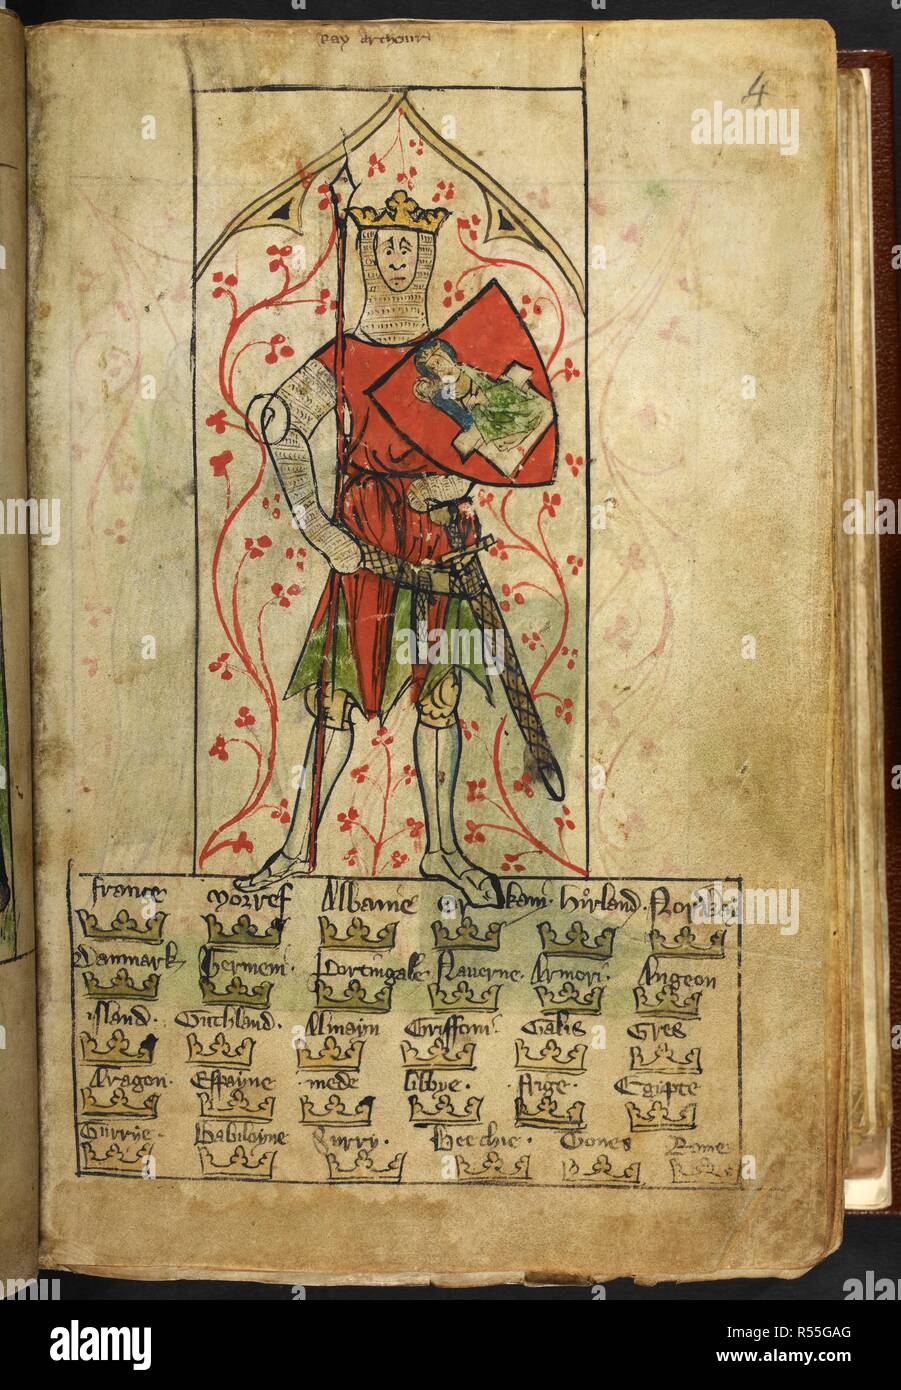 Ray Arthour
4
france Norref Albanie kani hirland Norwai
Danmark hermeni Portingale Nauerne Armori Angeon
island Guthland Almayn Griffoni Galis Gres
Aragon Espayne mede libbye Egipte
Surrye Babiloyne Surry Gones Rome
alamy
Image ID: R55GAG
www.alamy.com